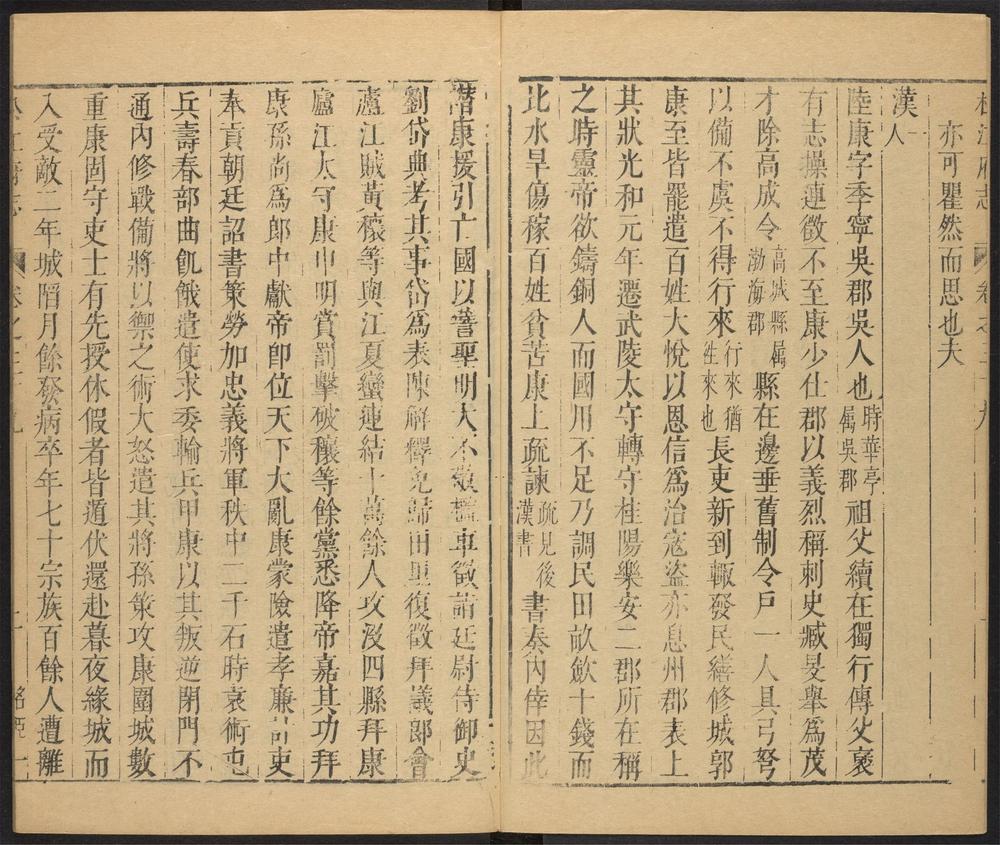 松江府志 卷之三十九
亦可瞿然而思也夫
漢一人
陸康字季寧吳郡吳人也時華亭屬吳郡祖父續在獨行傳父襃
有志操連徵不至康少仕郡以義烈稱刺史臧旻舉為茂
才除高成令高城縣屬渤海郡縣在邊垂舊制令戶一人具弓弩
以備不虞不得行來行來猶往來也長吏新到輙發民繕修城郭
康至皆罷遣百姓大悅以恩信為治寇盜亦息州郡表上
其狀光和元年遷武陵太守轉守桂陽樂安二郡所在稱
之時靈帝欲鑄銅人而國用不足乃調民田畝歛十錢而
比水旱傷稼百姓貧苦康上疏諫疏見後漢書書奏內倖因此
譖康援引亡國以譬聖明大不敬檻車徵詣廷尉侍御史
劉岱典考其事岱為表陳解釋免歸田里復徵拜議郎會
廬江賊黃穰等與江夏蠻連結十萬餘人攻沒四縣拜康
廬江太守康申明賞罰擊破穰等餘黨悉降帝嘉其功拜
康孫尚為郎中獻帝卽位天下大亂康蒙險遣孝廉計吏
奉貢朝廷詔書策勞加忠義將軍秩中二千石時袁術屯
兵壽春部曲飢餓遣使求委輸兵甲康以其叛逆閉門不
通內修戰備將以禦之術大怒遣其將孫策攻康圍城數
重康固守吏士有先授休假者皆遁伏還赴暮夜緣城而
入受敵二年城陷月餘發病卒年七十宗族百餘人遭離
松江府志 卷之三十九